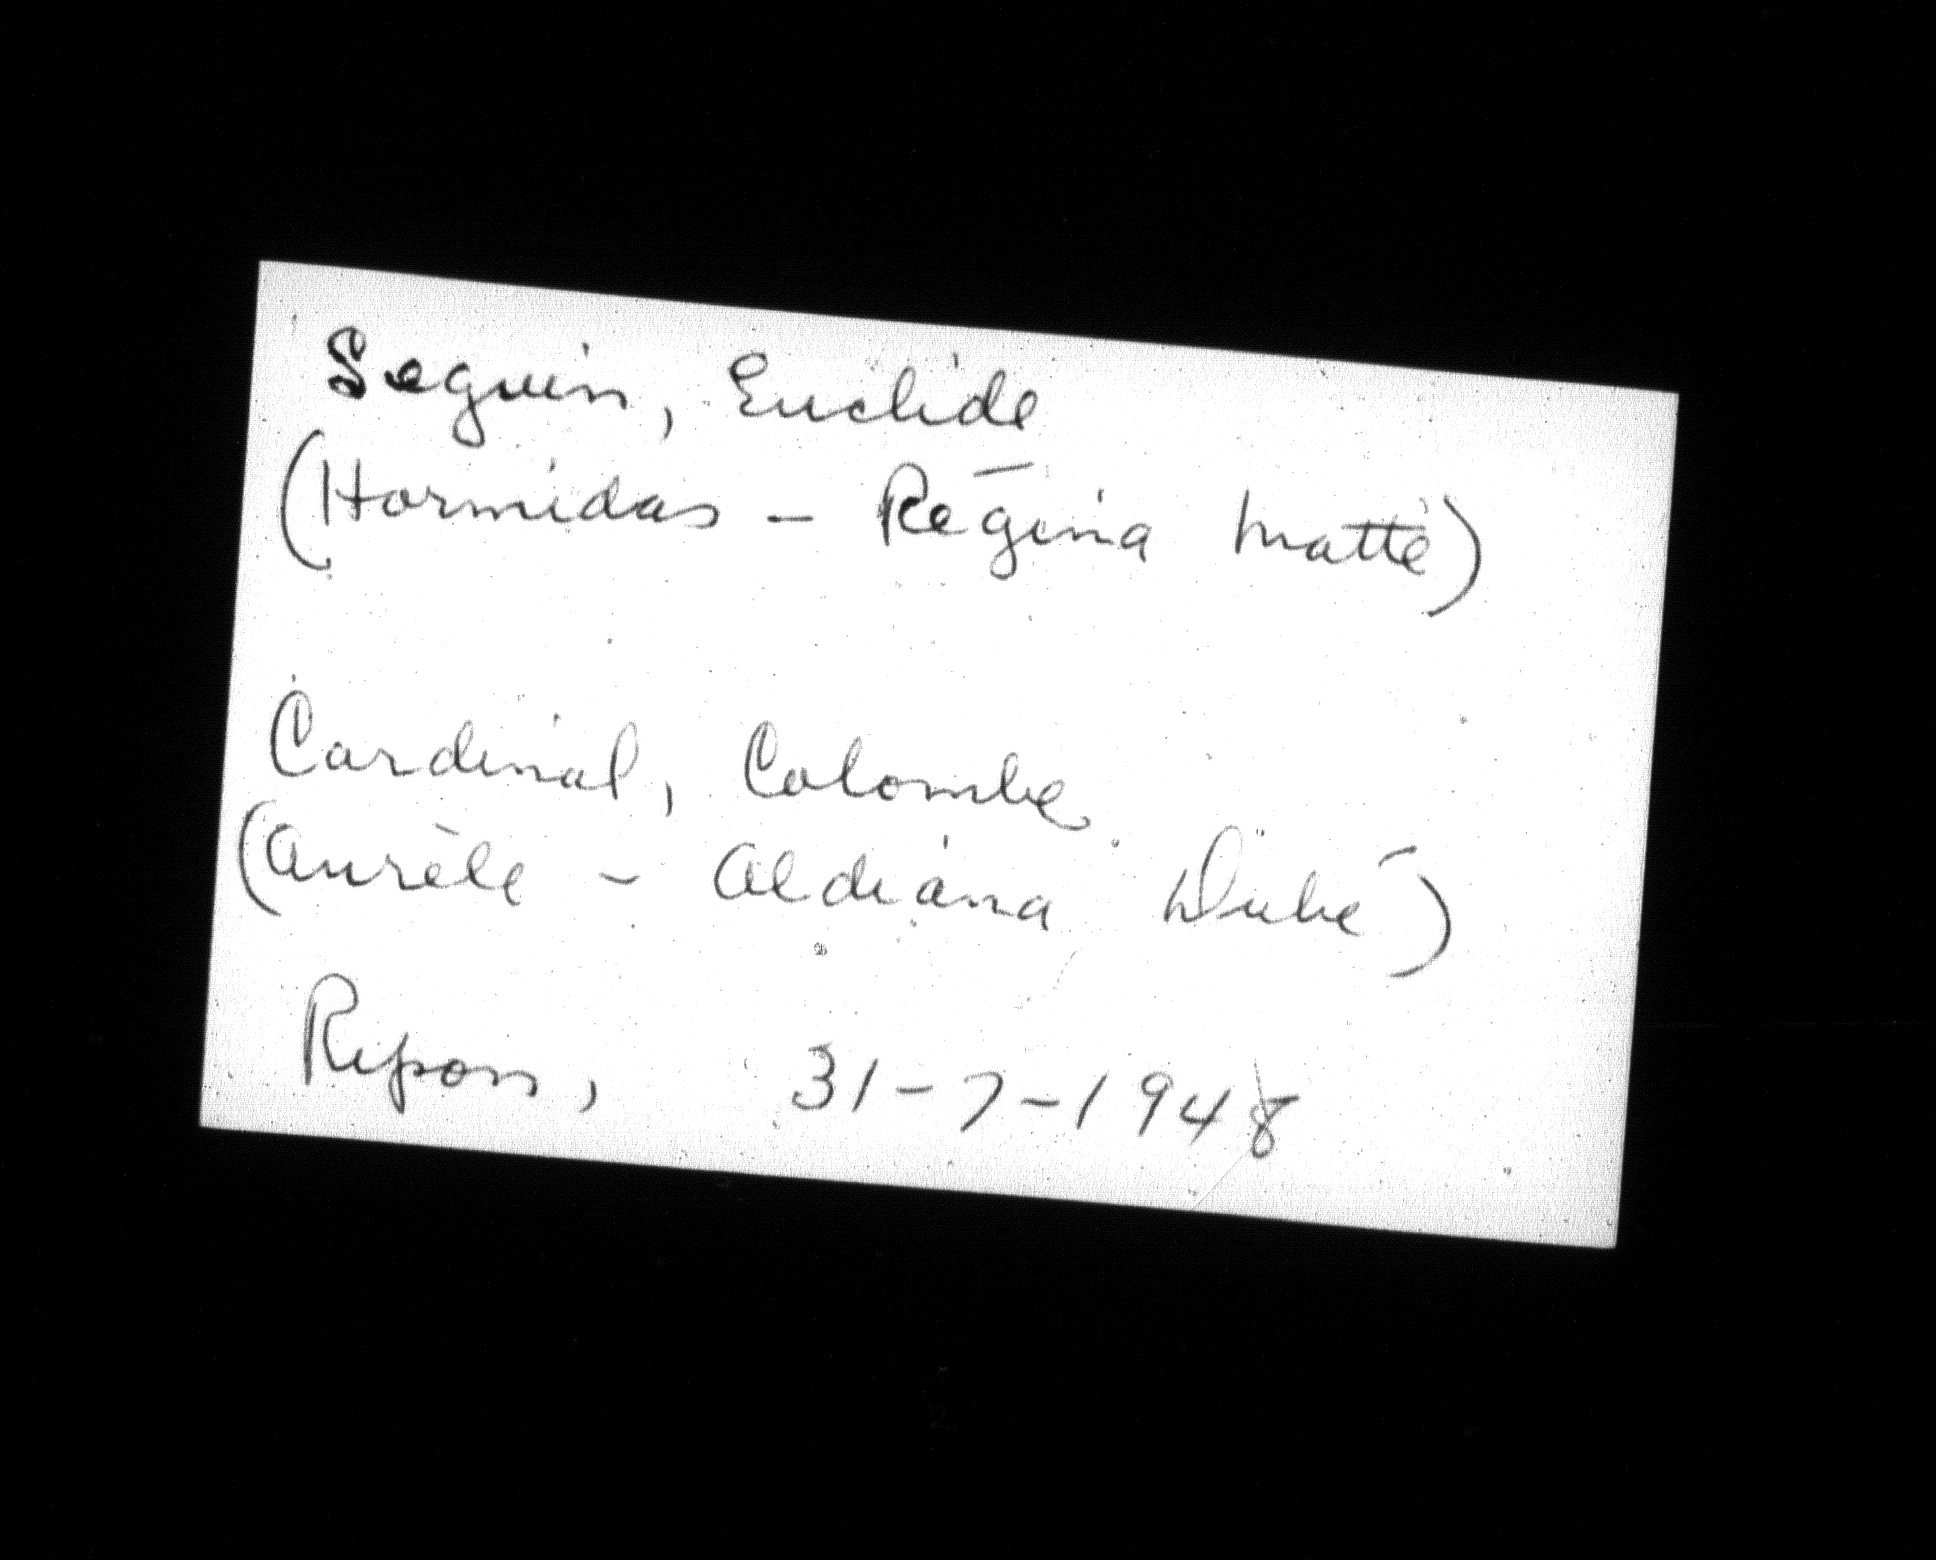 Seguin, Euclide
(Hormidas - Régina Matte)
Cardinal, Colombe
(Aurèle - Aldiana Dubé)
Ripon, 31-7-1948